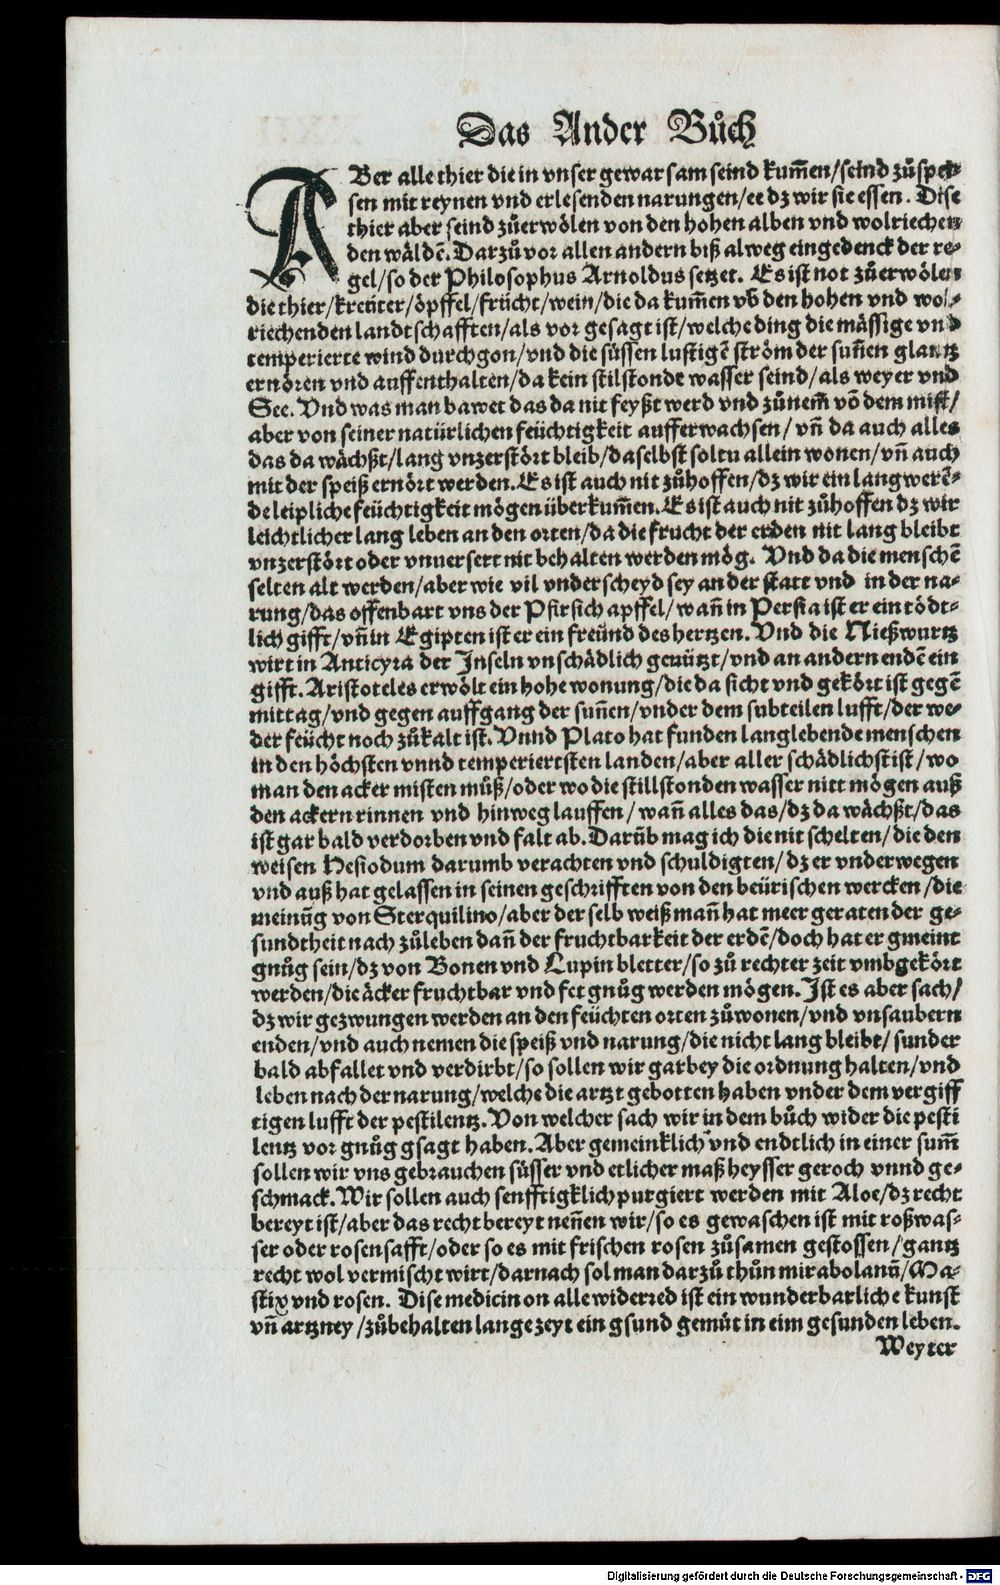 Das Ander Bůch
ABer alle thier die in vnser gewarsam seind kum̃en/seind zůspei-
sen mit reynen vnd erlesenden narungen/ee dz wir sie essen. Dise
thier aber seind zůerwölen von den hohen alben vnd wolriechen
den wäldẽ. Darzů vor allen andern biß alweg eingedenck der re-
gel/so der Philosophus Arnoldus setzet. Es ist not zůerwölen
die thier/kreüter/öpffel/frücht/wein/die da kum̃en võ den hohen vnd wol-
riechenden landtschafften/als vor gesagt ist/welche ding die mässige vnd
temperierte wind durchgon/vnd die süssen lustigẽ ström der sun̄en glantz
ernören vnd auffenthalten/da kein stilstonde wasser seind/als weyer vnd
See. Vnd was man bawet das da nit feyßt werd vnd zůnem̃ võ dem mist/
aber von seiner natürlichen feüchtigkeit aufferwachsen/ vn̄ da auch alles
das da wächßt/lang vnzerstört bleib/daselbst soltu allein wonen/vn̄ auch
mit der speiß ernört werden. Es ist auch nit zůhoffen/dz wir ein langwerẽ-
de leipliche feüchtigkeit mögen überkum̃en. Es ist auch nit zůhoffen dz wir
leichtlicher lang leben an den orten/da die frucht der erden nit lang bleibt
vnzerstört oder vnuersert nit behalten werden mög. Vnd da die menschẽ
selten alt werden/aber wie vil vnderscheyd sey an der statt vnd in der na-
rung/das offenbart vns der Pfirsichapffel/wan̄ in Persia ist er ein tödt-
lich gifft/vn̄ in Egipten ist er ein freünd des hertzen. Vnd die Nießwurtz
wirt in Anticyra der Inseln vnschädlich genützt/vnd an andern endẽ ein
gifft. Aristoteles erwölt ein hohe wonung/die da sicht vnd gekört ist gegẽ
mittag/vnd gegen auffgang der sun̄en/vnder dem subteilen lufft/der we-
der feücht noch zůkalt ist. Vnnd Plato hat funden langlebende menschen
in den höchsten vnnd temperiertsten landen/aber aller schädlichst ist/wo
man den acker misten můß/oder wo die stillstonden wasser nitt mögen auß
den ackern rinnen vnd hinweg lauffen/ wan̄ alles das/dz da wächßt/das
ist gar bald verdorben vnd falt ab. Darūb mag ich die nit schelten/die den
weisen Hesiodum darumb verachten vnd schuldigten/dz er vnderwegen
vnd auß hat gelassen in seinen geschrifften von den beürischen wercken/die
meinūg von Sterquilino/aber der selb weiß man̄ hat meer geraten der ge-
sundtheit nach zůleben dan̄ der fruchtbarkeit der erdẽ/doch hat er gmeint
gnůg sein/dz von Bonen vnd Lupin bletter/so zů rechter zeit vmbgekört
werden/die äcker fruchtbar vnd fet gnůg werden mögen. Ist es aber sach/
dz wir gezwungen werden an den feüchten orten zůwonen/vnd vnsaubern
enden/vnd auch nemen die speiß vnd narung/die nicht lang bleibt/ sunder
bald abfallet vnd verdirbt/so sollen wir garbey die ordnung halten/vnd
leben nach der narung/welche die artzt gebotten haben vnder dem vergiff
tigen lufft der pestilentz. Von welcher sach wir in dem bůch wider die pesti
lentz vor gnůg gsagt haben. Aber gemeinklich vnd endtlich in einer sum̃
sollen wir vns gebrauchen süsser vnd etlicher maß heysser geroch vnnd ge-
schmack. Wir sollen auch senfftigklich purgiert werden mit Aloe/dz recht
bereyt ist/aber das recht bereyt nen̄en wir/so es gewaschen ist mit roßwas-
ser oder rosensafft/oder so es mit frischen rosen zůsamen gestossen/gantz
recht wol vermischt wirt/darnach sol man darzů thůn mirabolanū/Ma-
stix vnd rosen. Dise medicin on alle widerred ist ein wunderbarliche kunst
vn̄ artzney/zůbehalten lange zeyt ein gsund gemüt in eim gesunden leben.
Weyter
Digitalisierung gefördert durch die Deutsche Forschungsgemeinschaft - DFG